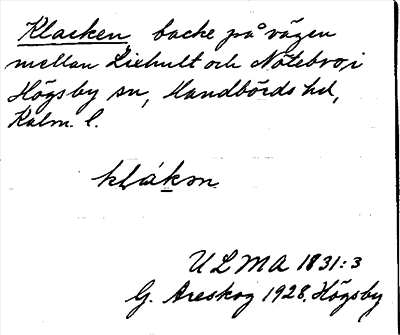 Klacken backe på vägen
mellan Ziehult och Nötebro i
Högsby sn, Handbörds hd,
Kalm. l.
klákɷn
ULMA 1831:3
G. Areskog 1928. Högsby